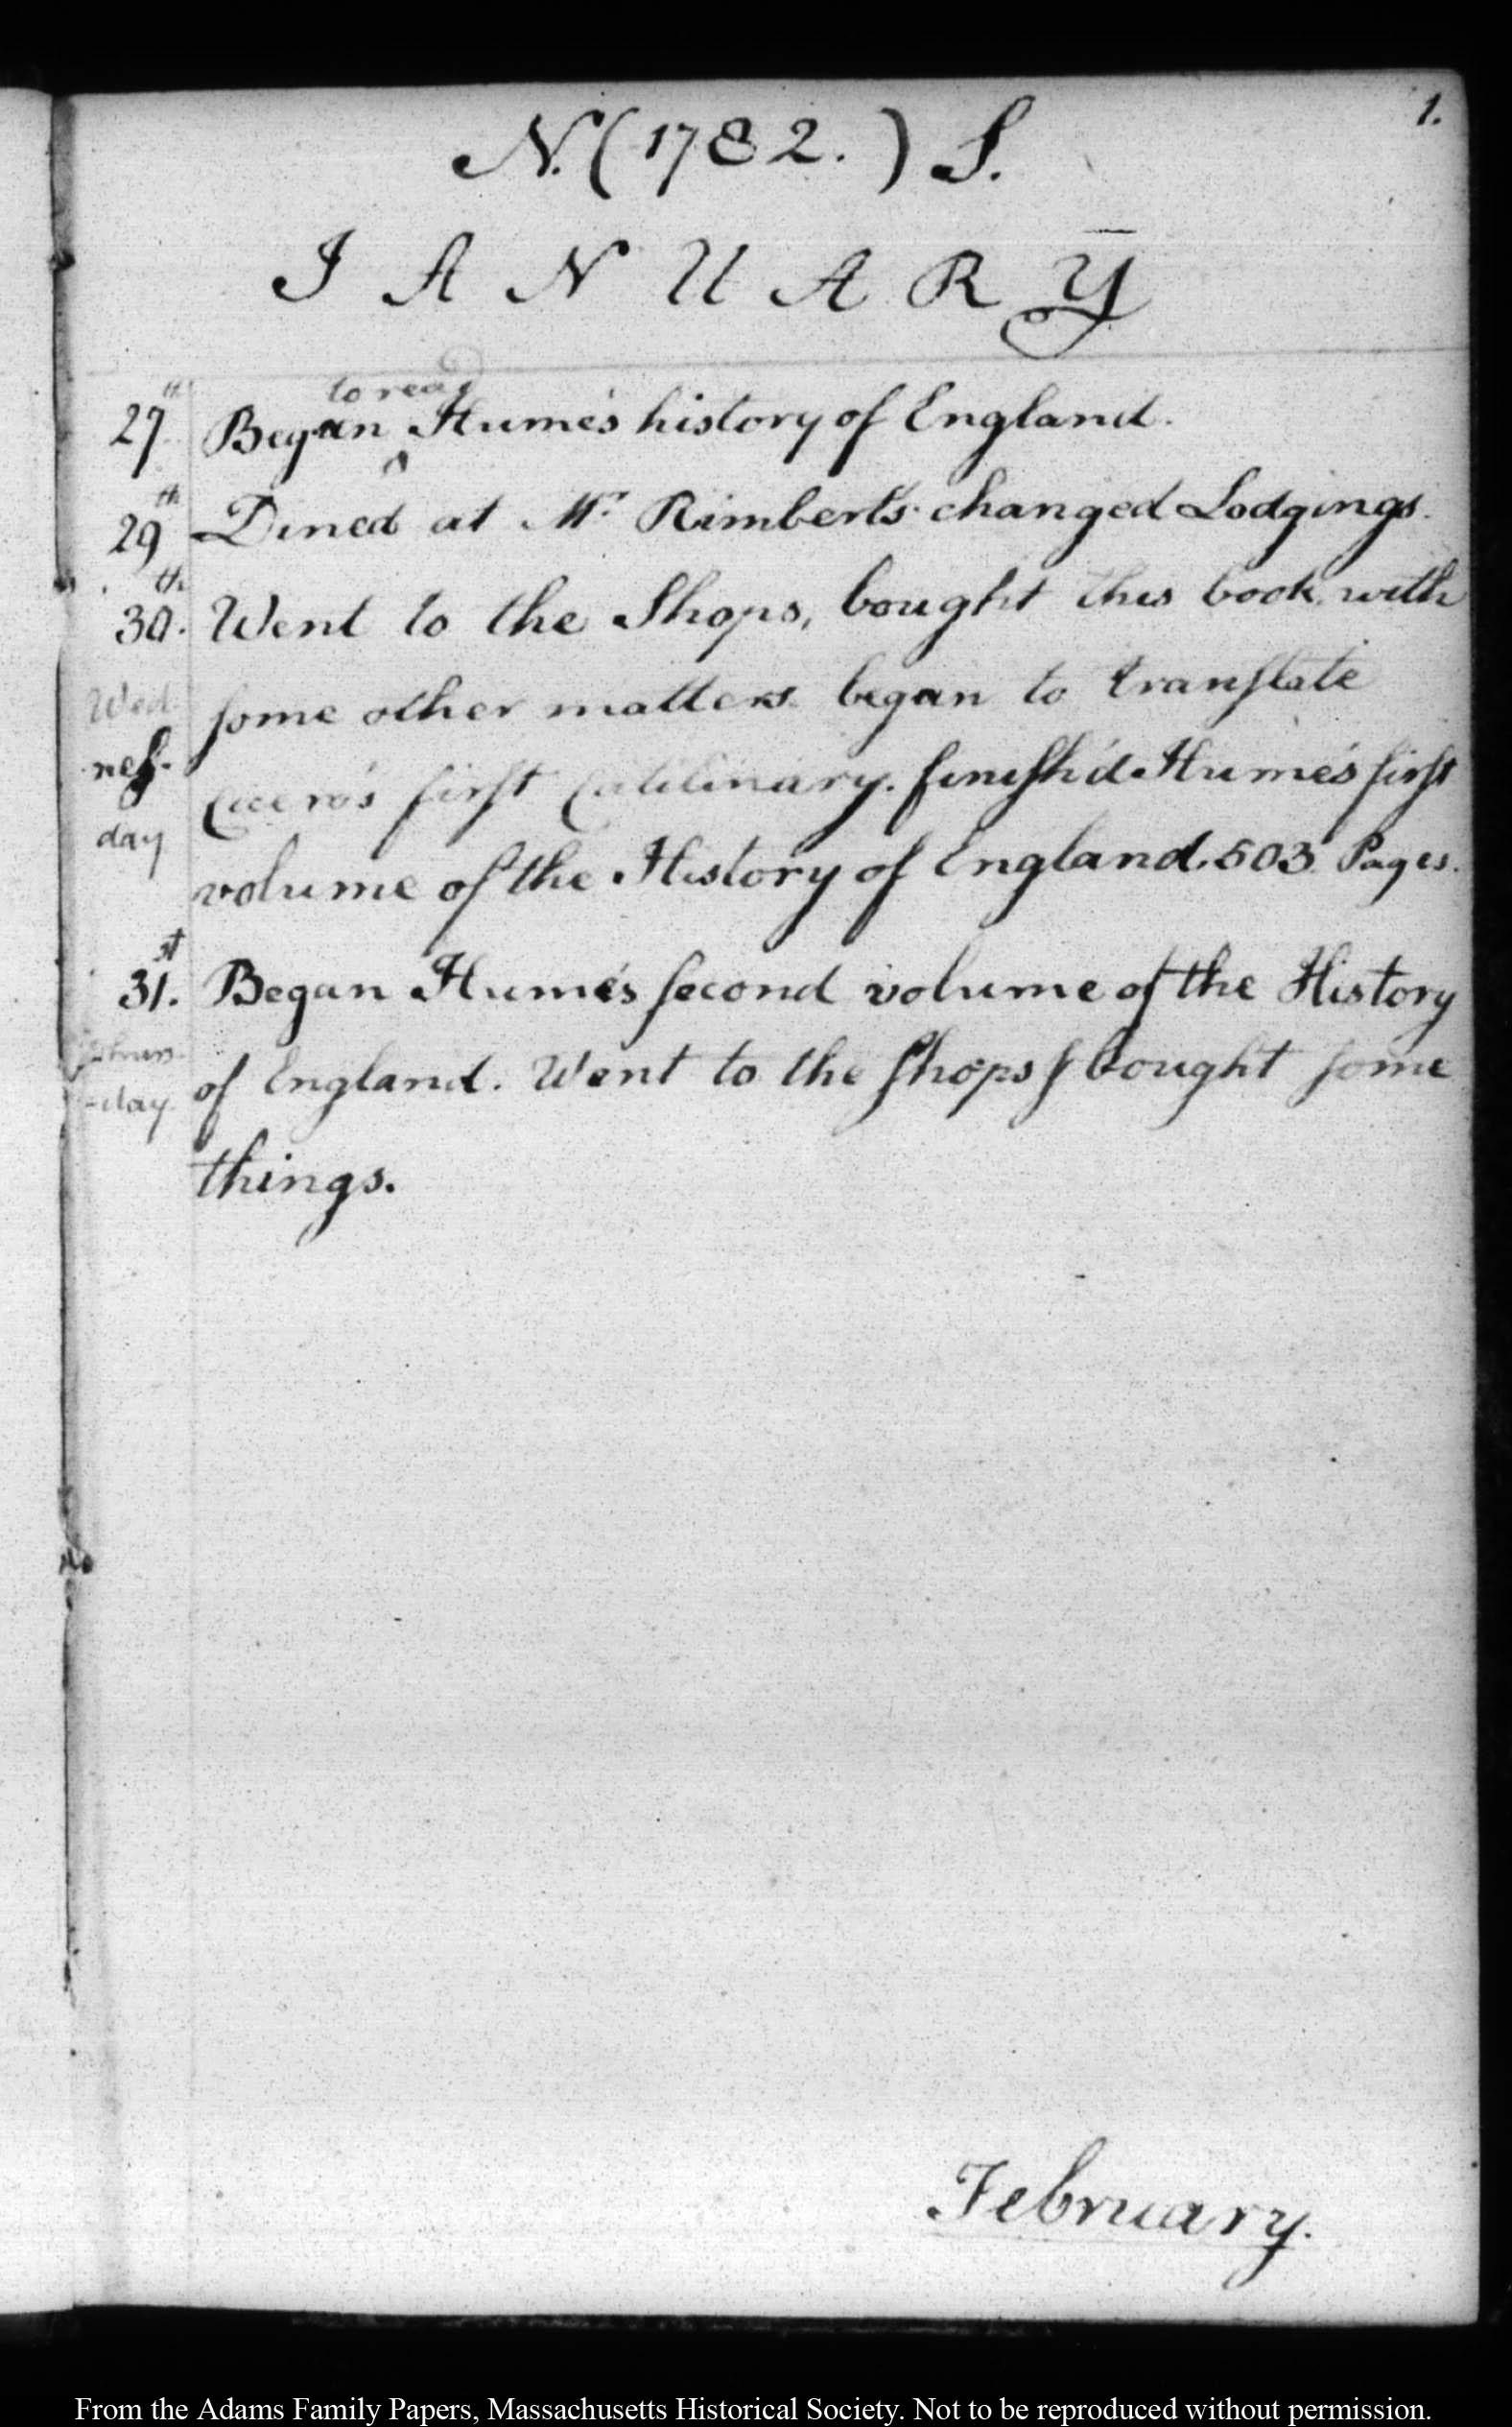 1.
N. (1782.) S.
IANUARY
to read
27th Began ^ Hume's history of England.
29th Dined at Mr. Rimbert's changed Lodgings.
30th. Went to the Shops, bought this book with
Wed some other matters began to tranſlate
neſ- Cicero's firſt Catilinary. finiſh'd Hume's firſt
day volume of the History of England. 503 Pages.
31st. Began Hume's ſecond volume of the History
Thurs- of England. Went to the ſhops & bought ſome
-day things.
February.
From the Adams Family Papers, Massachusetts Historical Society. Not to be reproduced without permission.